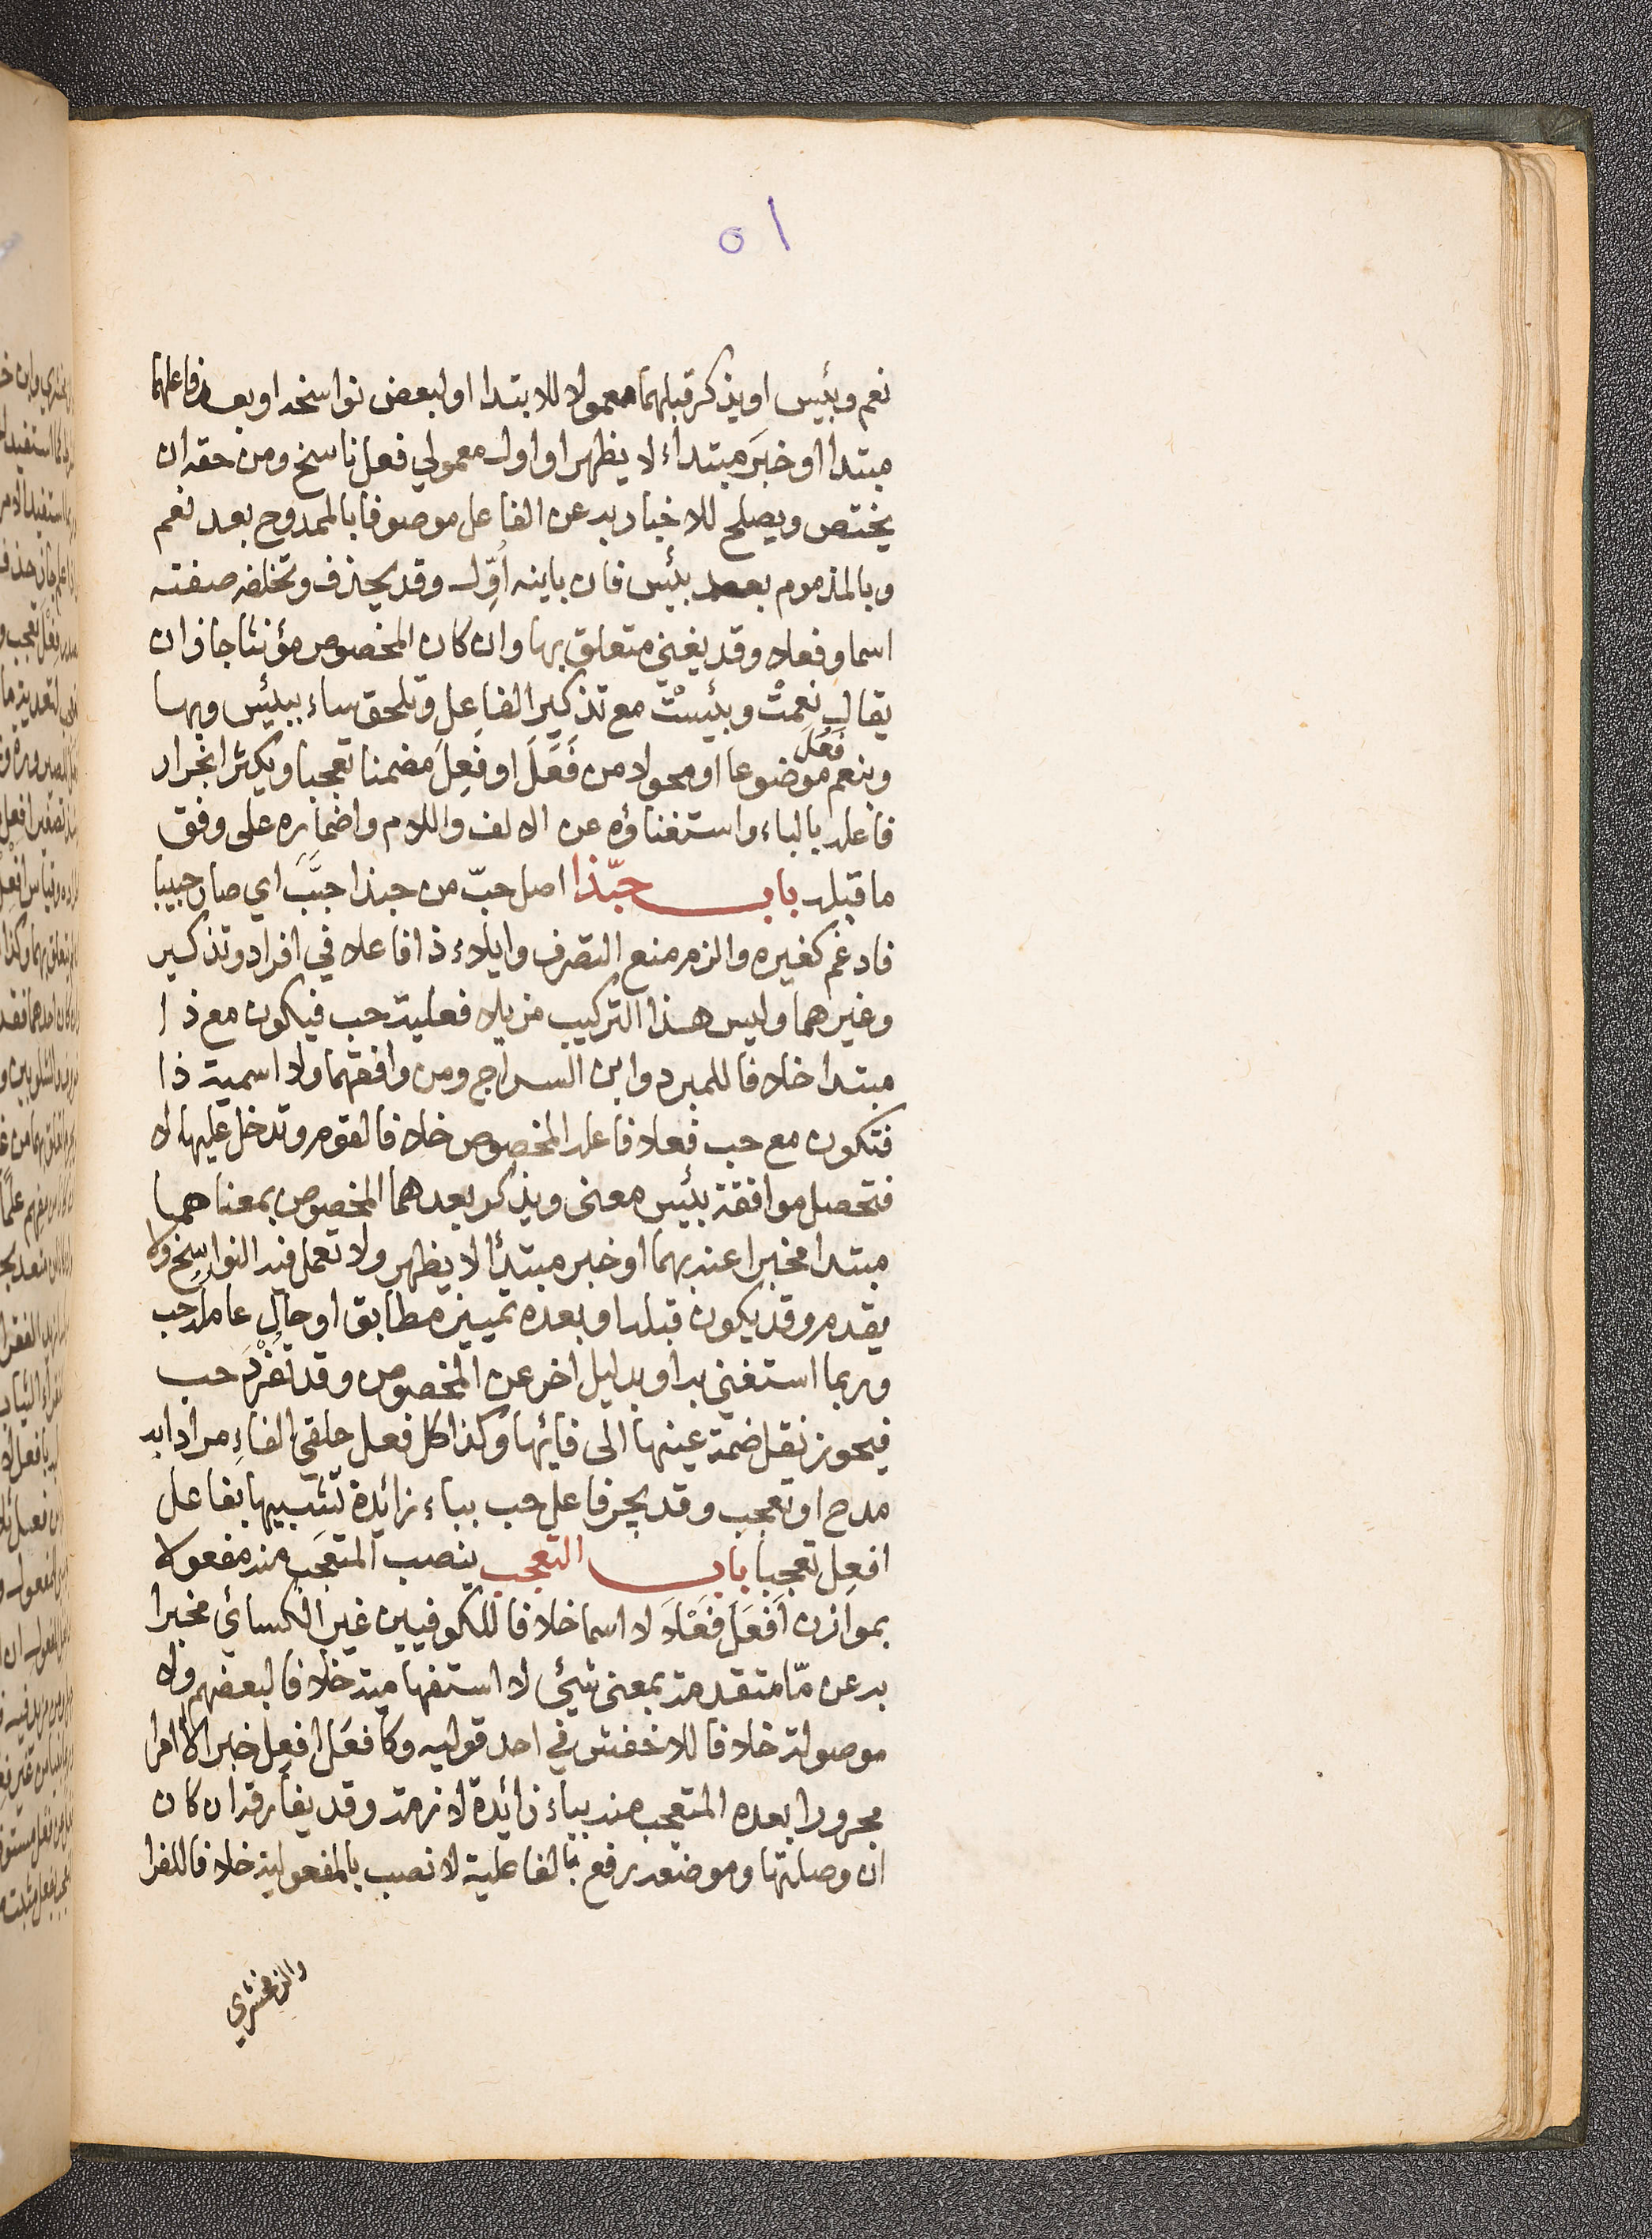 ١٥
نعم وبئيس او يذكر قبلهما معمولا للابتدا او لبعض نواسخه او بعد فاعلهما
مبتدا او خبَر مبتداء لا يظهر او اول معمولي فعل ناسخ ومن حقه ان
يختص ويصلح للاخبار به عن الفاعل موصوفا بالممدوح بعد نعم
وبالمذموم بعد بئس فان باينه اُوِّل وقد يحذف وتخلفه صفته
اسما وفعلا وقد يغني متعلق بها وان كان المخصوص مؤنثا جاز ان
يقال نِعمتْ وبئيستْ مع تذكير الفاعِلِ وتلحق ساء ببئيس وبها
وبنعم فَعُلَ موضوعا او محولا من فَعَلَ او فَعِلَ مضمنا تعجبا ويكثر انجرار
فاعله بالباء واستغناؤه عن الالف واللام واضماره على وفق
ما قبله باب حبّذا اصل حبّ من حبذا حبَبَ اي صار حبيبا
فادغم كغيره والزم منع التصرف وايلاء ذا فاعلا في افراد وتذكير
وغيرهما وليس هذا التركيب مزيلا فعلية حب فيكون مع ذا
مبتدا خلافا للمبرد وابن السراج ومن وافقهما ولا اسمية ذا
فتكون مع حب فعلا فاعله المخصوص خلافا لقوم وتدخل عليها لا
فتحصل موافقة بئيس معنى ويذكر بعدهما المخصوص بمعناهما
مبتدا مخبرا عنه بهما او خبر مبتدأ لا يظهر ولا تعمل فيه النواسخ ولا
يقدم وقد يكون قبله او بعده تمييز مطابق او حال عامله حب
وربما استغني به او بدليل اخر عن المخصوص وقد تُفْرَد حب
فيجوز نقل ضمة عينها الى فائها وكذا كل فعل حلقي الفاءِ مراد به
مدح او تعجب وقد يجر فاعل حب بباء زائدة تشبيها بفاعل
افعِل تعجبا باب التعجب ينصب المتعَجب منه مفعولا
بموازن اَفعَلَ فَعْلَا لا اسما خلافا للكوفيين غير الكسائي مخبرا
به عن مّا متقدمة بمعنى شيئ لا استفهامية خلافا لبعضهم ولا
موصولة خلافا للاخفش في احد قوليه وكافعَل افعِل خبرا لا امرا
مجرورا بعده المتعجب منه بباء زائدة لازمة وقد يفارقه ان كان
ان وصلتها وموضعه رفع بالفاعلية لا نصب بالمفعولية خلافا للفرا
والزمخشري